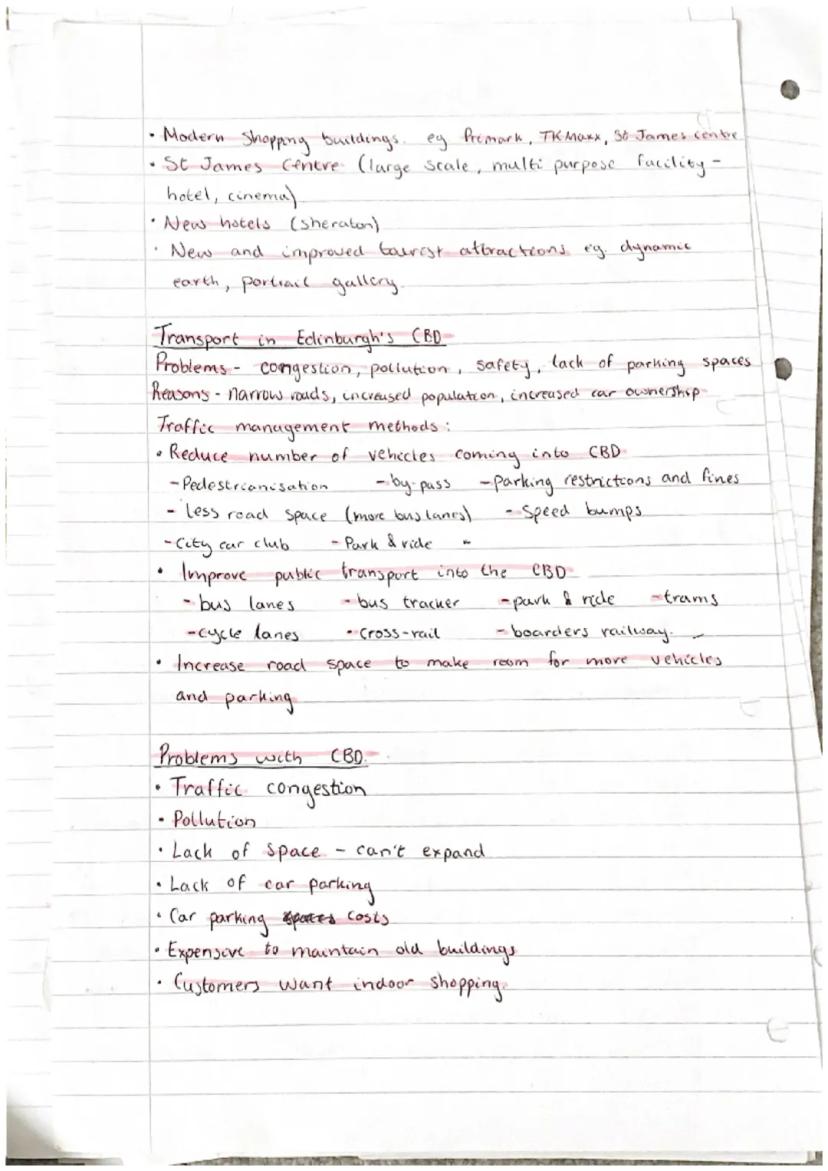 • Modern Shopping buildings. eg Primark, TKMaxx, St James centre
• St James Centre (large scale, multi purpose facility -
hotel, cinema)
• New hotels (sheraton)
• New and improved tourist attractions eg. dynamic
earth, portrait gallery.
Transport in Edinburgh's CBD
Problems - congestion, pollution, safety, lack of parking spaces
Reasons - narrow roads, increased population, increased car ownership
Traffic management methods:
• Reduce number of vehicles coming into CBD
- Pedestrianisation - by-pass - parking restrictions and fines
- less road space (more bus lanes) - Speed bumps
- City car club - Park & ride -
• Improve public transport into the CBD
- bus lanes - bus tracker - park & ride - trams
- cycle lanes • cross-rail - boarders railway.
• Increase road space to make room for more vehicles
and parking
Problems with CBD.
• Traffic congestion
• Pollution
• Lack of space - can't expand
• Lack of car parking
• Car parking spaces costs
• Expensive to maintain old buildings
• Customers want indoor shopping.